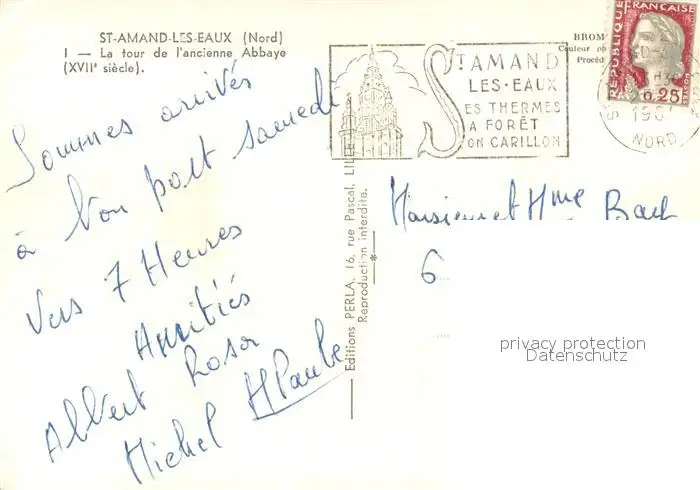 ST-AMAND-LES-EAUX (Nord)
I — La tour de l'ancienne Abbaye
(XVIIe siècle).
Sommes arrivés
à bon port samedi
vers 7 Heures
Amitiés
Albert Rosa
Michel
Editions PERLA, 16, rue Pascal, LILLE
Reproduction interdite.
BROM
Couleur
Procéd
ST AMAND
LES-EAUX
SES THERMES
A FORÊT
ON CARILLON
REPUBLIQUE FRANÇAISE
0,25
196
NORD
Monsieur et Mme Bach
6
privacy protection
Datenschutz